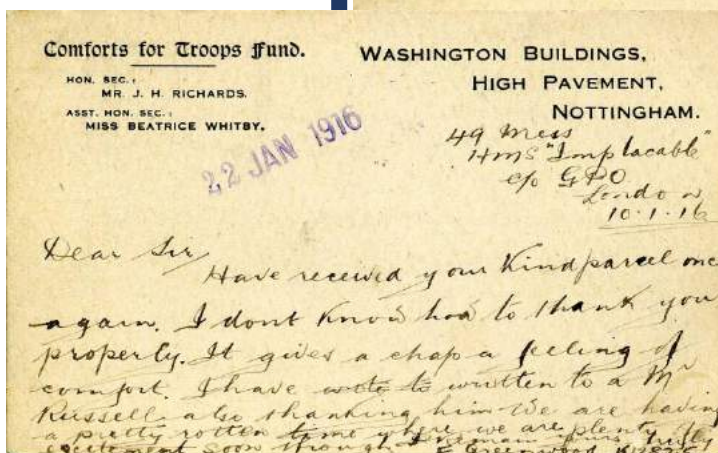 Comforts for Troops Fund.
HON. SEC.:
MR. J. H. RICHARDS.
ASST. HON. SEC.:
MISS BEATRICE WHITBY.
WASHINGTON BUILDINGS,
HIGH PAVEMENT,
NOTTINGHAM.
22 JAN 1916
49 Mess
HMS "Implacable"
c/o GPO
London
10.1.16
Dear Sir
Have received your Kind parcel once
again. I dont know how to thank you
properly. It gives a chap a feeling of
comfort. I have wrote to written to a Mr
Russell also thanking him We are having
a pretty rotten time where we are plenty of
excitement soon though I remain yours truly
E Greenwood